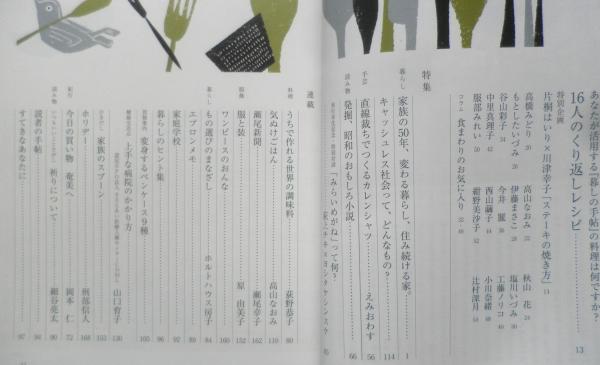 あなたが活用する『暮しの手帖』の料理は何ですか?
16人のくり返しレシピ 13
特別企画
片桐はいり×川津幸子「ステーキの焼き方」 14
高橋みどり 20
高山なおみ 22
秋山 花 24
もとしたいづみ 26
伊藤まさこ 28
塩川いづみ 30
谷山彩子 34
今井 麗 36
工藤ノリコ
中里真理子 42
西山繭子 44
小川奈緒 48
服部みれい 50
紺野美沙子 52
辻村深月
コラム 食まわりのお気に入り 32 46
特集
暮らし
家族の50年、変わる暮らし、住み続ける家。 1
キャッシュレス社会って、どんなもの? 114
手芸
直線裁ちでつくるカレンシャツ えみおわす 56
読み物
発掘、昭和のおもしろ小説 66
「みらいめがね」って何?
連載
料理
うちで作れる世界の調味料 荻野恭子 80
気ぬけごはん 高山なおみ 110
瀬尾新聞 瀬尾幸子 162
服飾
服と装 原 由美子 152
ワンピースのおんな 160
暮らし
もの選びのまなざし ホルトハウス房子 84
エプロンメモ 89
家庭学校 92
暮らしのヒント集 96
変身するペンケース9種 105
上手な病院のかかり方 山口育子 130
家族のスプーン 155
ホリデー 刑部信人 168
紀行
今日の買い物 奄美へ 岡本 仁 72
読み物
祈りについて 細谷亮太 90
読者の手帖 94
すてきなあなたに 97